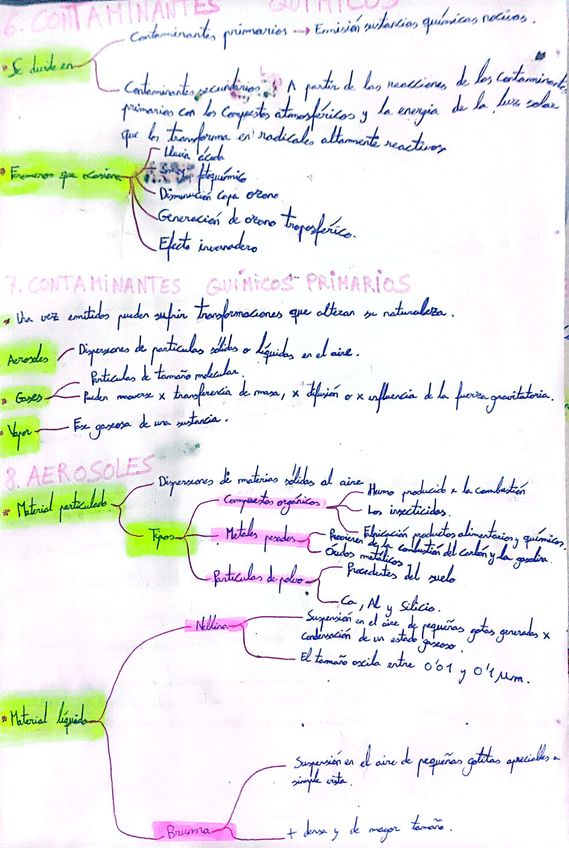 6. CONTAMINANTES QUÍMICOS
* Se divide en
Contaminantes primarios → Emisión sustancias químicas nocivas.
Contaminantes secundarios: A partir de las reacciones de los contaminantes
primarios con los compuestos atmosféricos y la energía de la luz solar
que los transforma en radicales altamente reactivos
* Fenómenos que ocasiona
Lluvia ácida
Smog fotoquímico
Disminución capa ozono
Generación de ozono troposférico.
Efecto invernadero.
7. CONTAMINANTES QUÍMICOS PRIMARIOS
* Una vez emitidos pueden sufrir transformaciones que alteran su naturaleza.
Aerosoles
Dispersiones de partículas sólidas o líquidas en el aire.
* Gases
Partículas de tamaño molecular.
Pueden moverse x transferencia de masa, x difusión o x influencia de la fuerza gravitatoria.
* Vapor
Fase gaseosa de una sustancia.
8. AEROSOLES
* Material particulado
Dispersiones de materias sólidas al aire
Tipos
Compuestos orgánicos
Humo producido x la combustión
Los insecticidas.
productos alimentarios y químicos.
Metales pesados
Provienen de la combustión del carbón y la gasolina.
Óxidos metálicos
Partículas de polvo
Procedentes del suelo
Ca, Al y Silicio.
* Material líquido
Neblina
Suspensión en el aire de pequeñas gotas generadas x
condensación de un estado gaseoso.
El tamaño oscila entre 0'01 y 0'1 μm.
Bruma
Suspensión en el aire de pequeñas gotitas apreciables a
simple vista.
+ densa y de mayor tamaño.